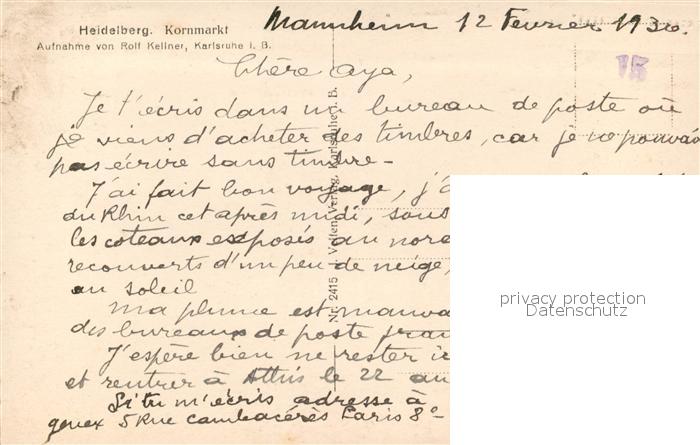 Heidelberg. Kornmarkt
Aufnahme von Rolf Kellner, Karlsruhe i. B.
Mannheim 12 Fevrier 1930.
15
Chère aya,
Je t'écris dans un bureau de poste où
je viens d'acheter des timbres, car je ne pouvais
pas écrire sans timbre -
J'ai fait bon voyage, j'a
du Rhin cet après midi, sous
les coteaux exposés au nord
recouverts d'un peu de neige,
au soleil
Ma plume est mauva
des bureaux de poste fran
J'espère bien ne rester ic
et rentrer à Athis le 22 au
Si tu m'écris adresse à
5 Rue Cambacérès Paris 8e -
Nr. 2415 - Velten-Verlag, Karlsruhe i. B.
privacy protection
Datenschutz